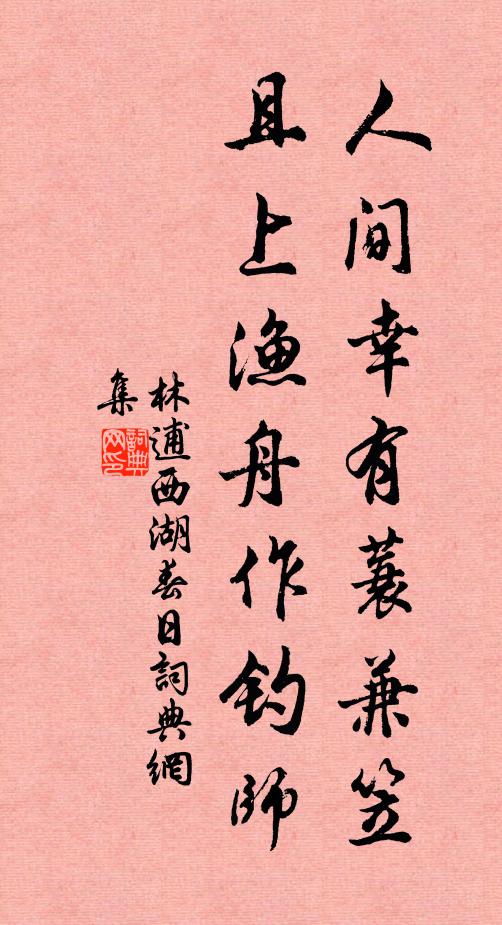 人间幸有蓑兼笠
且上渔舟作钓师
林逋西湖春日词典網
集
詞典
网印